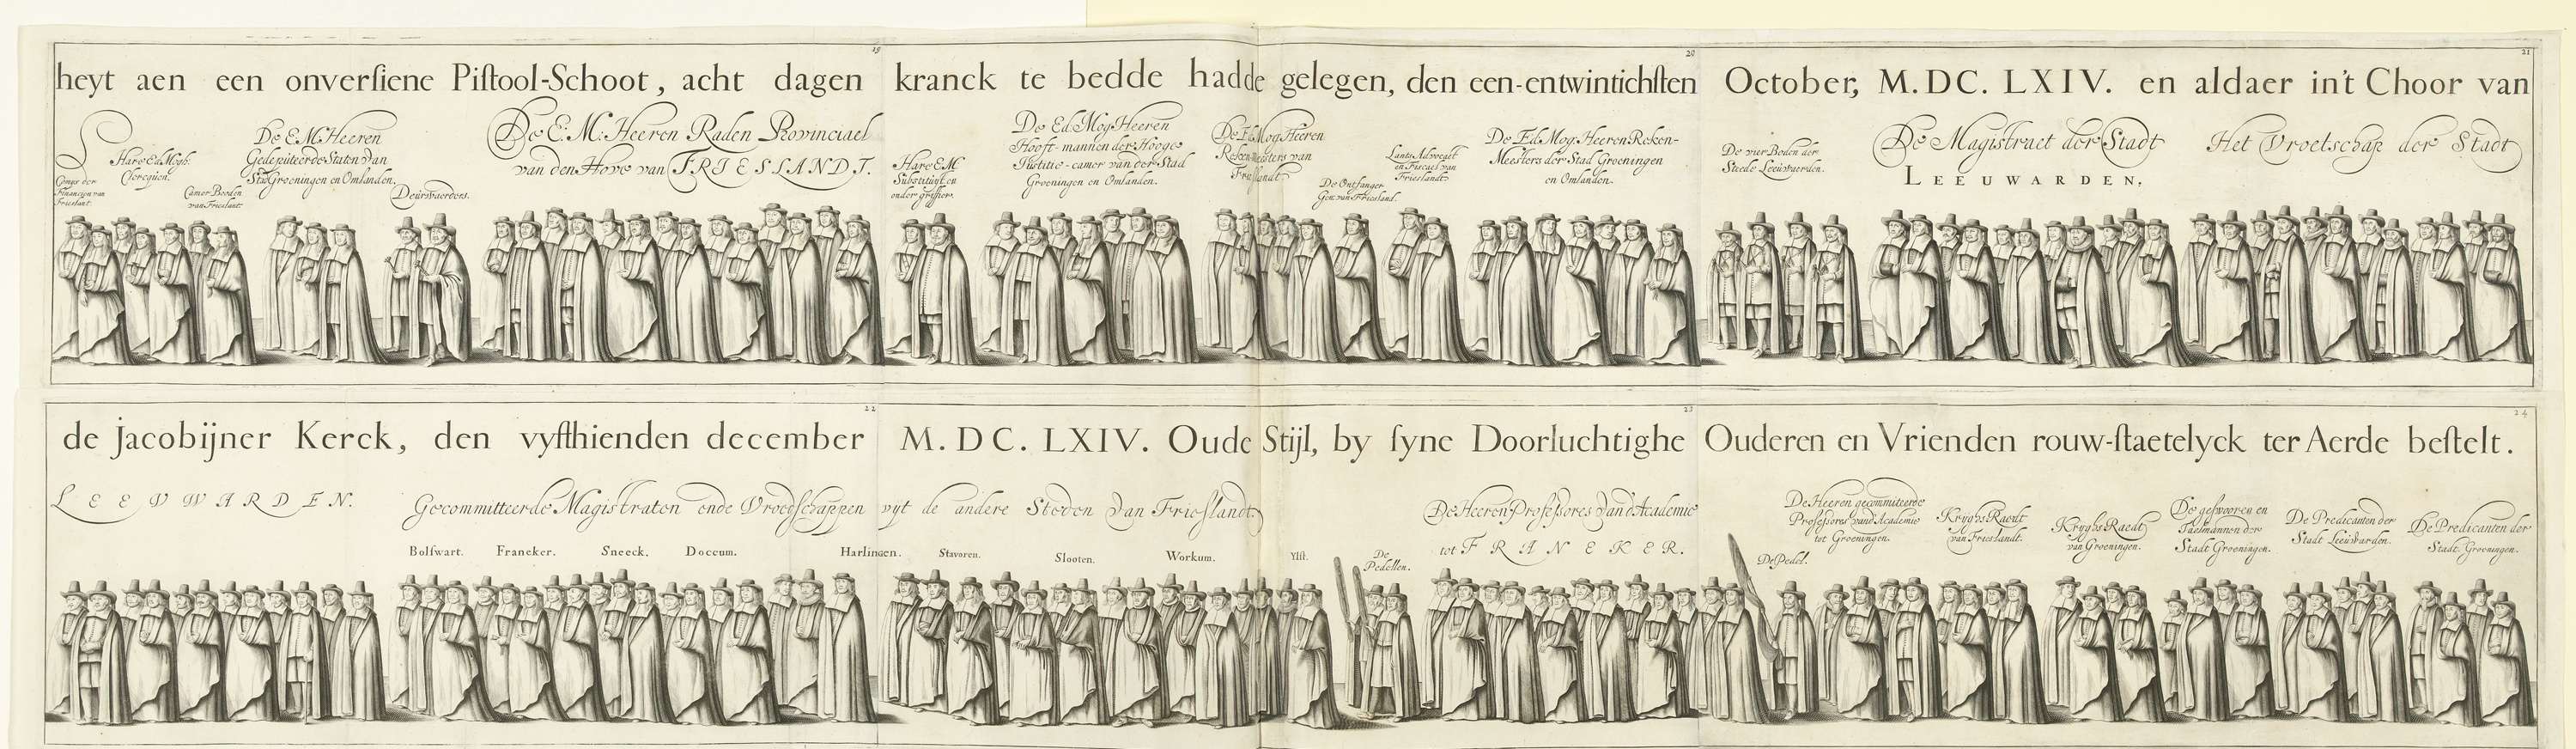 19
20
21
heyt aen een onverſiene Piſtool-Schoot, acht dagen kranck te bedde hadde gelegen, den een-entwintichſten October, M.DC.LXIV. en aldaer in't Choor van
Comys der
Financien van
Frieslant.
Hare Ed. Mogh:
Clercquen.
Camer Booden
van Frieslant.
De E.M. Heeren
Gedeputeerde Staten van
Stad Groeningen en Omlanden.
Deurwaerders.
De E: M: Heeren Raden Provinciael
van den Hove van FRIESLANDT.
Hare E.M.
Substituyt en
onder griffier.
De Ed. Mog. Heeren
Hooft-mannen der Hooge
Justitie-camer van der Stad
Groeningen en Omlanden.
De Ed. Mog. Heeren
Reken-Meesters van
Frieslandt
De Ontfanger
Gen: van Friesland.
Lants Advocaet
en Fiscael van
Frieslandt
De Ed. Mog. Heeren Reken-
Meesters der Stad Groeningen
en Omlanden.
De vier Boden der
Stede Leeuwarden.
De Magistraet der Stadt
LEEUWARDEN,
Het Vroetschap der Stadt
22
23
24
de Jacobijner Kerck, den vyfthienden december M.DC.LXIV. Oude Stijl, by ſyne Doorluchtighe Ouderen en Vrienden rouw-ſtaetelyck ter Aerde beſtelt.
LEEUWARDEN.
Gecommitteerde Magistraten ende Vroedschappen vyt de andere Steden van Frieslandt.
Bolſwart.
Franeker.
Sneeck.
Doccum.
Harlingen.
Stavoren.
Slooten.
Workum.
Ylſt.
De
Pedellen.
De Heeren Professores van d'Academie
tot FRANEKER.
De Pedel.
De Heeren gecommiteerde
Professores vand Academie
tot Groeningen.
Kryghs Raedt
van Frieslandt.
Kryghs Raedt
van Groeningen.
De geswooren en
Taelmannen der
Stadt Groeningen.
De Predicanten der
Stadt Leeuwarden.
De Predicanten der
Stadt Groeningen.